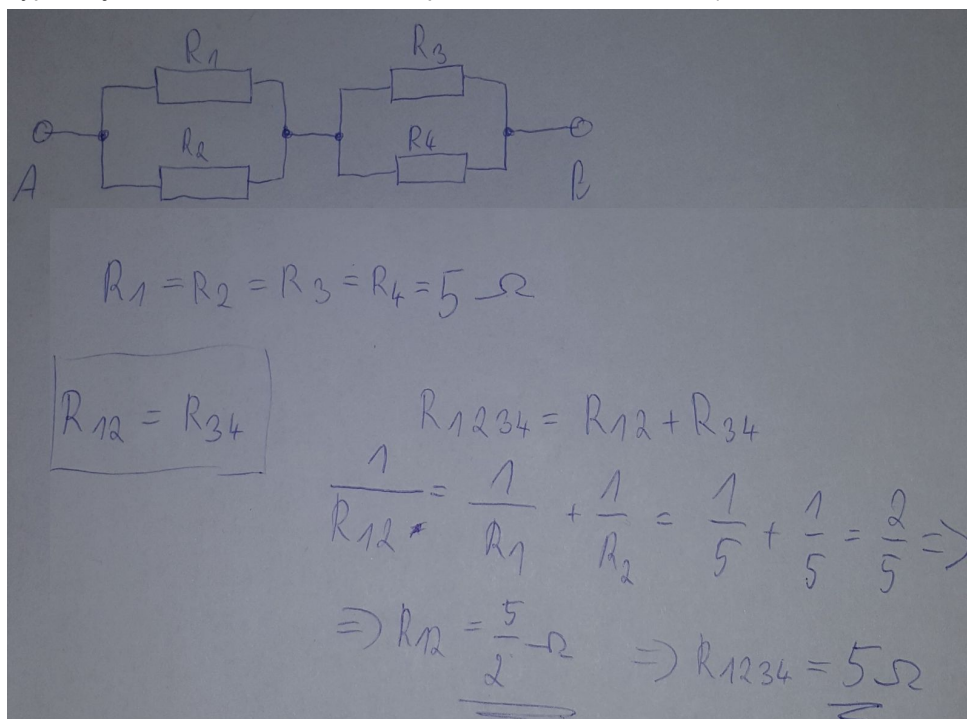 R1 R3
R2 R4
A B
R1 = R2 = R3 = R4 = 5 Ω
R12 = R34
R1234 = R12 + R34
1/R12 = 1/R1 + 1/R2 = 1/5 + 1/5 = 2/5 =>
=> R12 = 5/2 Ω => R1234 = 5Ω